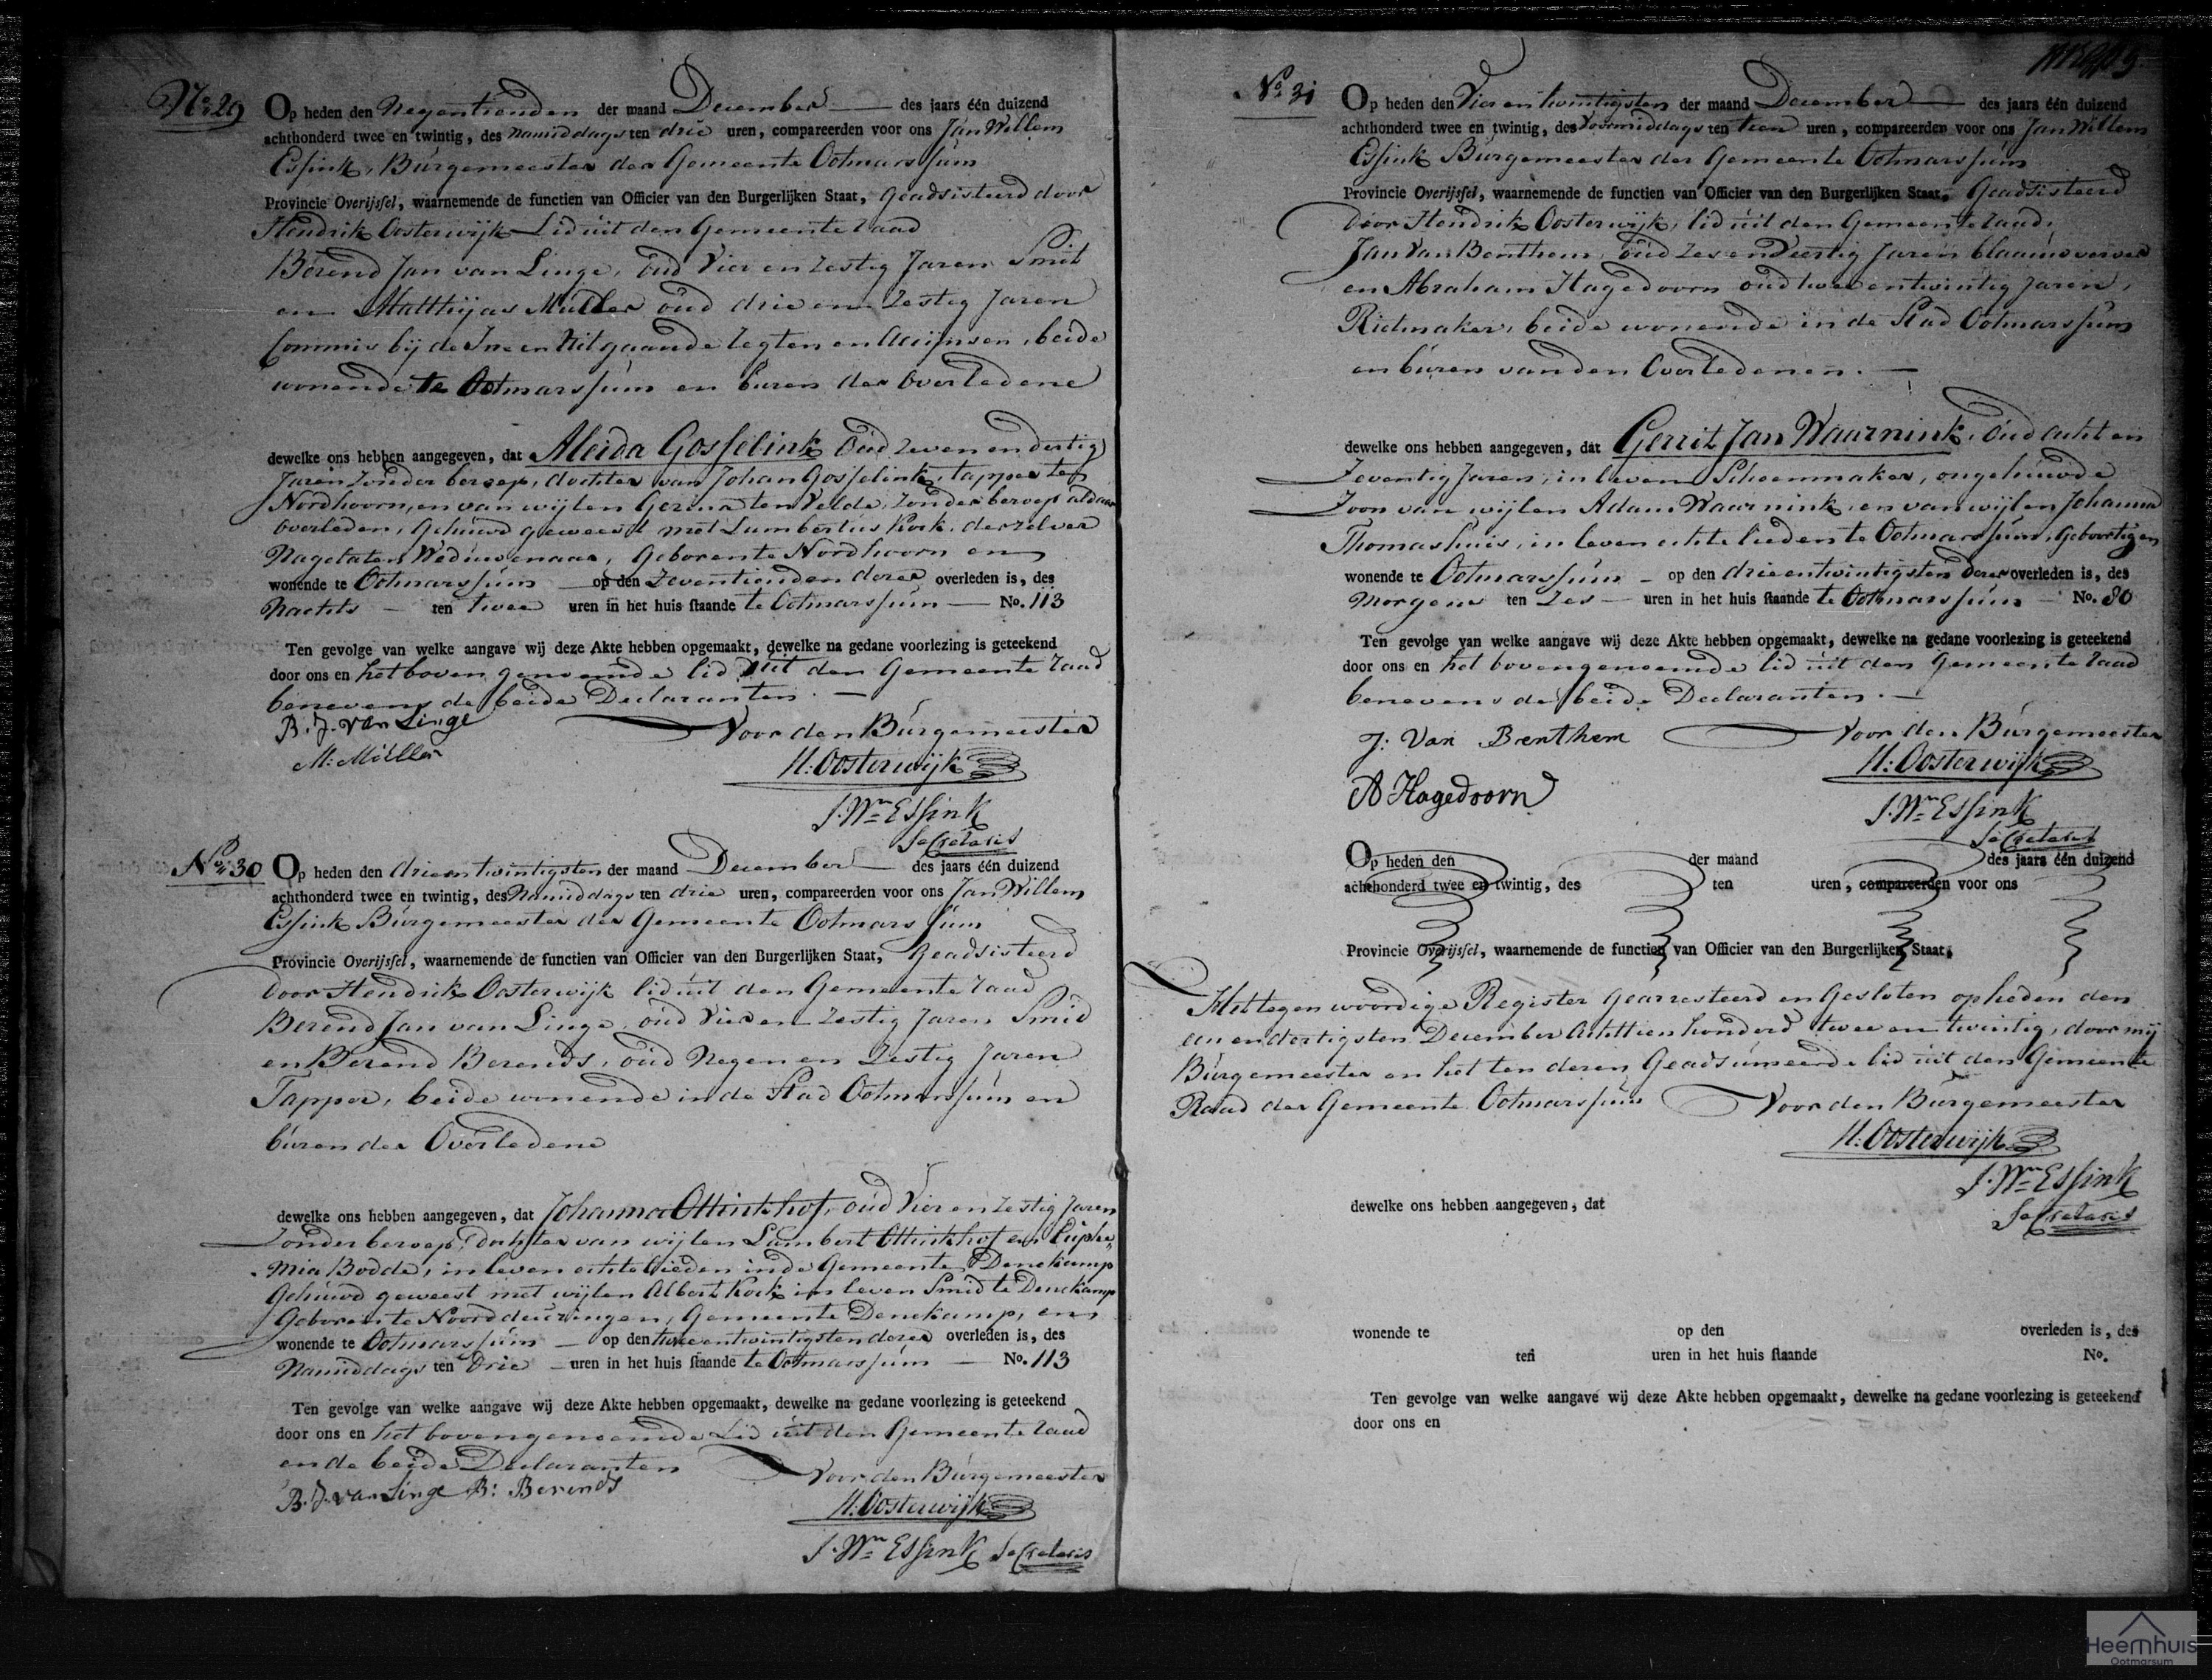 No. 29
Op heden den Negentienden der maand December des jaars één duizend
achthonderd twee en twintig, des namiddags ten drie uren, compareerden voor ons Jan Willem
Essink, Burgemeester der Gemeente Ootmarssum
Provincie Overijssel, waarnemende de functien van Officier van den Burgerlijken Staat, Geadsisteerd door
Hendrik Oosterwijk Lid uit den Gemeente raad
Berend Jan van Linge, oud Vier en Zestig Jaren Smit
en Matthijas Muller oud drie en Zestig Jaren
Commis bij de In en Uitgaande regten en Accijnsen, beide
wonende te Ootmarssum en buren der Overledene
dewelke ons hebben aangegeven, dat Aleida Gosselink Oud Zeven en dertig
Jaren Zonder beroep, dochter van Johan Gosselink, tapper te
Nordhoorn, en van wijlen Gezina ten Velde, Zonder beroep aldaar
overleden, Gehuwd geweest met Lambertus Kock, derzelver
Nagelaten Weduwenaar, Geboren te Nordhoorn en
wonende te Ootmarssum op den Zeventienden dezer overleden is, des
Nachts ten twee uren in het huis staande te Ootmarssum No. 113
Ten gevolge van welke aangave wij deze Akte hebben opgemaakt, dewelke na gedane voorlezing is geteekend
door ons en het boven genoemde lid uit den Gemeente raad
benevens de beide Declaranten.
B. J. van Linge
Voor den Burgemeester
M: Müller
H: Oosterwijk
J. Wm Essink
Secretaris
No. 30
Op heden den drie en twintigsten der maand December des jaars één duizend
achthonderd twee en twintig, des Namiddags ten drie uren, compareerden voor ons Jan Willem
Essink Burgemeester der Gemeente Ootmarssum
Provincie Overijssel, waarnemende de functien van Officier van den Burgerlijken Staat, Geadsisteerd
door Hendrik Oosterwijk lid uit den Gemeente raad
Berend Jan van Linge, oud Vier en Zestig Jaren Smid
en Berend Berends, oud Negen en Zestig Jaren
Tapper, beide wonende in de Stad Ootmarssum en
buren der Overledene
dewelke ons hebben aangegeven, dat Johanna Ottinkhof, oud Vier en Zestig Jaren
Zonder beroep, dochter van wijlen Lambert Ottinkhof en Euphe
mia Bodde, in leven echte lieden in de Gemeente Denekamp
Gehuwd geweest met wijlen Albert Kock in leven Smid te Denekamp
Geboren te Noord deuringen, Gemeente Denekamp, en
wonende te Ootmarssum op den twee en twintigsten dezer overleden is, des
Namiddags ten Drie uren in het huis staande te Ootmarssum No. 113
Ten gevolge van welke aangave wij deze Akte hebben opgemaakt, dewelke na gedane voorlezing is geteekend
door ons en het bovengenoemde Lid uit den Gemeente raad
en de beide Declaranten
Voor den Burgemeester
B. J. van Linge B: Berends
H: Oosterwijk
J. Wm Essink Secretaris
No. 31
Op heden den Vier en twintigsten der maand December des jaars één duizend
achthonderd twee en twintig, des Voormiddags ten tien uren, compareerden voor ons Jan Willem
Essink Burgemeester der Gemeente Ootmarssum
Provincie Overijssel, waarnemende de functien van Officier van den Burgerlijken Staat, Geadsisteerd
door Hendrik Oosterwijk, lid uit den Gemeente raad,
Jan Van Benthem, oud Zes en Veertig Jaren blaauwverver
en Abraham Hagedoorn oud twee en twintig Jaren,
Rietmaker, beide wonende in de Stad Ootmarssum
en buren van den Overledenen.
dewelke ons hebben aangegeven, dat Gerrit Jan Waarnink, Oud acht en
Zeventig Jaren, in leven Schoenmaker, ongehuwde
Zoon van wijlen Adam Waarnink, en van wijlen Johanna
Thomashuis, in leven echte lieden te Ootmarssum, Geboortig en
wonende te Ootmarssum op den drie en twintigsten dezer overleden is, des
Morgens ten Zes uren in het huis staande te Ootmarssum No. 80
Ten gevolge van welke aangave wij deze Akte hebben opgemaakt, dewelke na gedane voorlezing is geteekend
door ons en het bovengenoemde lid uit den Gemeente raad
benevens de beide Declaranten.
J: Van Benthem
Voor den Burgemeester
H: Oosterwijk
A Hagedoorn
J. Wm Essink
Secretaris
Op heden den der maand des jaars één duizend
achthonderd twee en twintig, des ten uren, compareerden voor ons
Provincie Overijssel, waarnemende de functien van Officier van den Burgerlijken Staat,
Het tegenwoordige Register Gearresteerd en Gesloten op heden den
een en dertigsten December Achttien honderd twee en twintig, door mij
Burgemeester en het ten dezen Geadsumeerde lid uit den Gemeente
Raad der Gemeente Ootmarssum Voor den Burgemeester
H: Oosterwijk
J. Wm Essink
Secretaris
dewelke ons hebben aangegeven, dat
wonende te op den overleden is, des
ten uren in het huis staande No.
Ten gevolge van welke aangave wij deze Akte hebben opgemaakt, dewelke na gedane voorlezing is geteekend
door ons en
Heemhuis
Ootmarsum